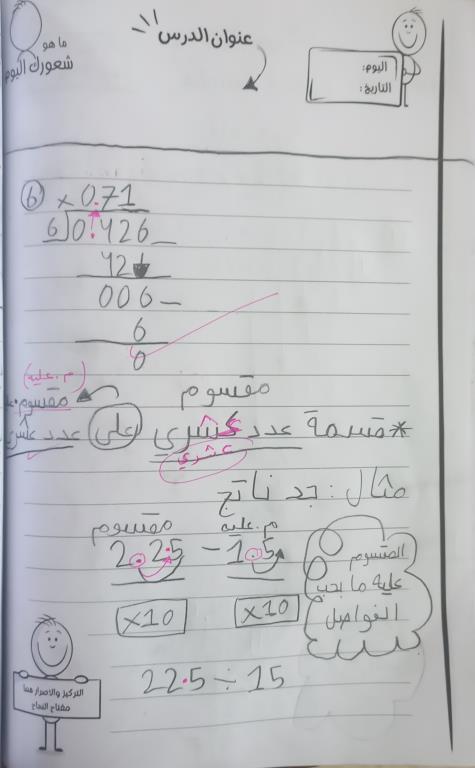 ما هو
شعورك اليوم
عنوان الدرس
اليوم:
التاريخ:
6 × 0.71
6 0.426
42
006
6
0
(م. عليه)
مقسوم
مقسوم
* قسمة عدد عشري على عدد
عشري
مثال: جد ناتج
مقسوم م. عليه
2.25 - 1.5
×10 ×10
المقسوم
عليه ما بحب
الفواصل
22.5 ÷ 15
التركيز والاصرار هما
مفتاح النجاح